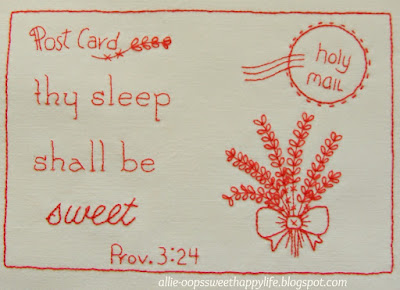 Post Card
holy
mail
thy sleep
shall be
sweet
Prov. 3:24
allie-oopssweethappylife.blogspot.com